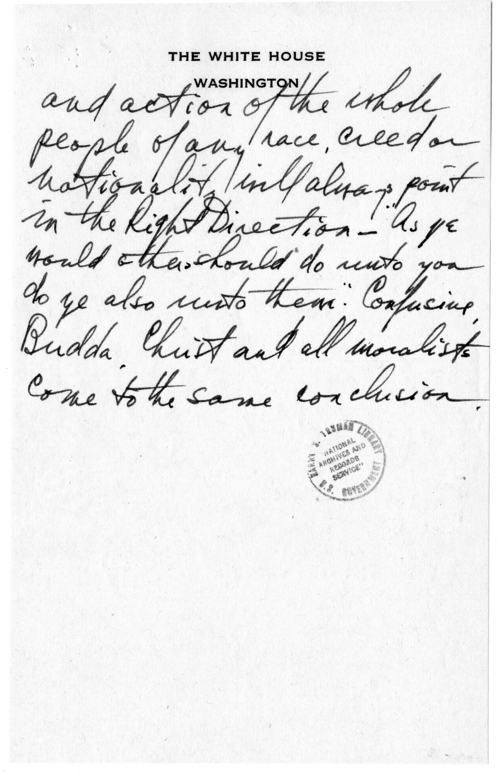 THE WHITE HOUSE
WASHINGTON
and action of the whole
people of any race, creed or
nationality will always point
in the Right Direction — "As ye
would others should do unto you
do ye also unto them". Confusius,
Budda, Christ and all moralists
come to the same conclusion.
HARRY S. TRUMAN LIBRARY
NATIONAL
ARCHIVES AND
RECORDS
SERVICE
U.S. GOVERNMENT